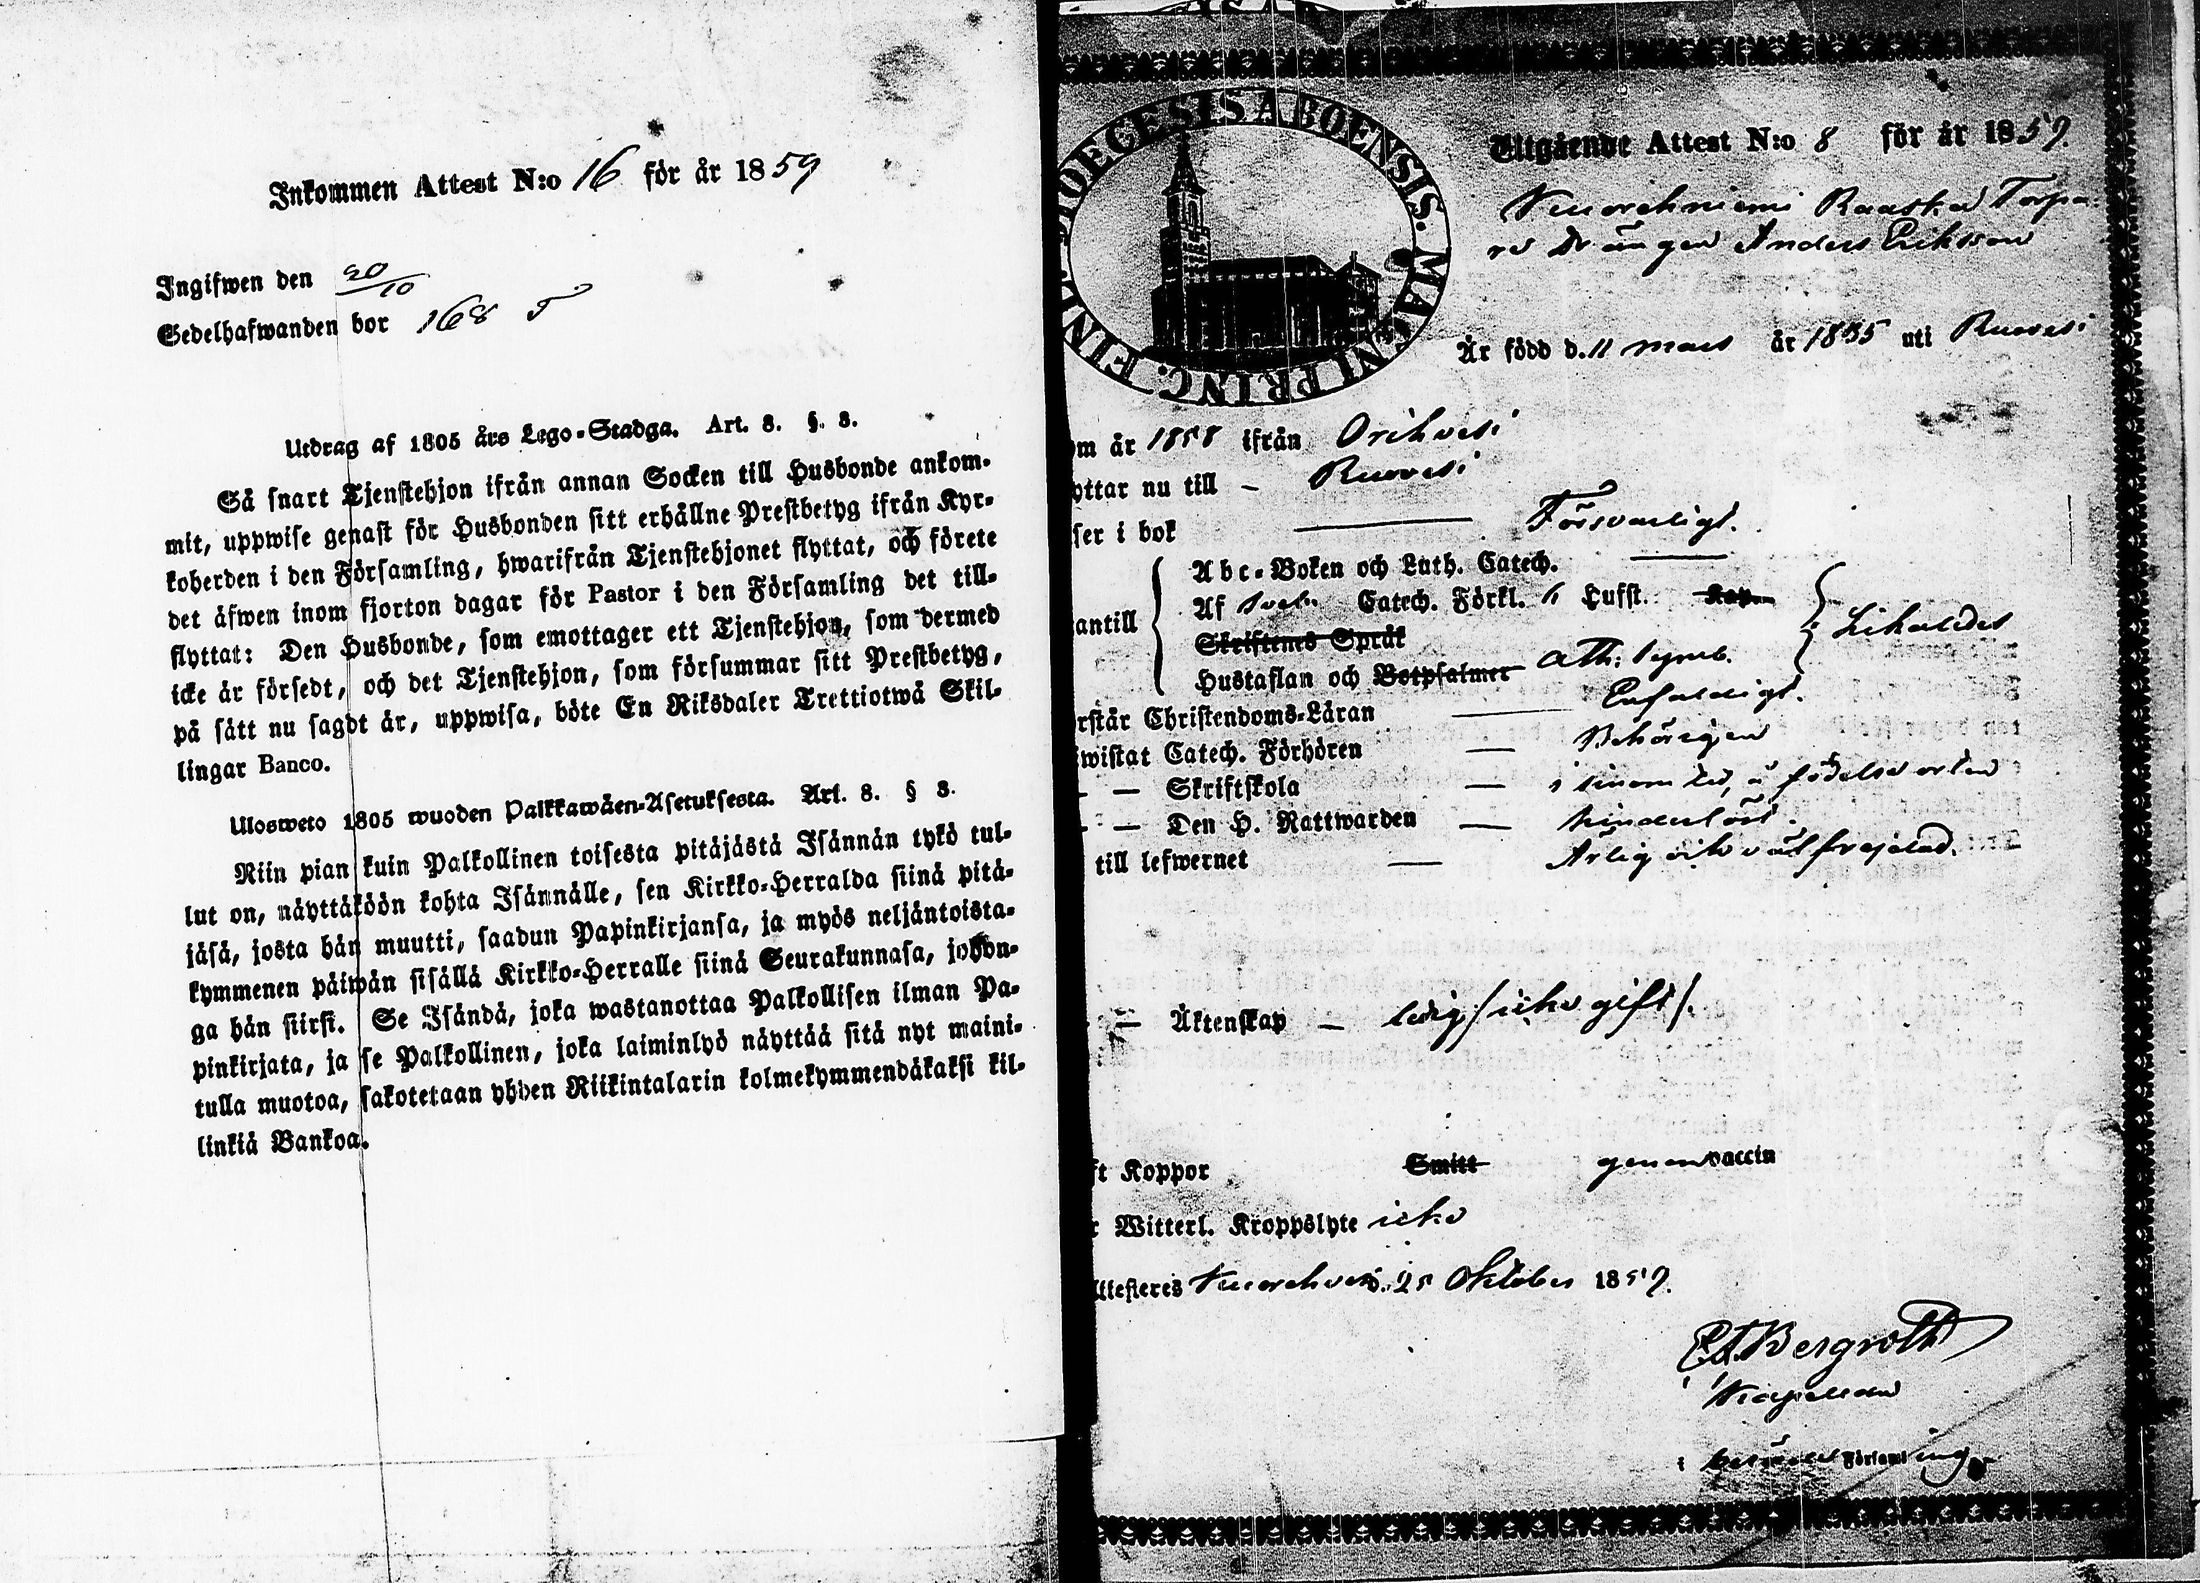 Inkommen Attest N:o 16 för år 1859
Ingifwen den 30/10
Sedelhafwanden bor 168 T
Utdrag af 1805 års Lego-Stadga. Art. 8. §. 3.
Så snart Tjenstehjon ifrån annan Socken till Husbonde ankom-
mit, uppwise genast för Husbonden sitt erhållne Prestbetyg ifrån Kyr-
koherden i den Församling, hwarifrån Tjenstehjonet flyttat, och förete
det äfwen inom fjorton dagar för Pastor i den Församling det till-
flyttat: Den Husbonde, som emottager ett Tjenstehjon, som dermed
icke är försedt, och det Tjenstehjon, som försummar sitt Prestbetyg,
på sätt nu sagdt är, uppwisa, böte En Riksdaler Trettiotwå Skil-
lingar Banco.
Ulosweto 1805 wuoden Palkkawäen-Asetuksesta. Art. 8. § 3.
Niin pian kuin Palkollinen toisesta pitäjästä Isännän tykö tul-
lut on, näyttäköön kohta Isännälle, sen Kirkko-Herralda siinä pitä-
jäsä, josta hän muutti, saadun Papinkirjansa, ja myös neljäntoista-
kymmenen päiwän sisällä Kirkko-Herralle siinä Seurakunnasa, johon-
ga hän siirsi. Se Isändä, joka wastanottaa Palkollisen ilman Pa-
pinkirjata, ja se Palkollinen, joka laiminlyö näyttää sitä nyt maini-
tulla muotoa, sakotetaan yhden Riikintalarin kolmekymmendäkaksi kil-
linkiä Bankoa.
DIOECESIS ABOENSIS. MAGNI PRINC. FINL.
Utgående Attest N:o 8 för år 1859.
Kuorehniemi Raaska Torpa-
re Drängen Anders Eriksson
Är född d. 11 mars år 1835 uti Ruovesi
om år 1858 ifrån Orihvesi
yttar nu till – Ruovesi
ser i bok — Försvarligt.
Abc-Boken och Luth. Catech. —
Af Sveb. Catech. Förkl. Hufst. Kap.
antill
Skriftenes Språk
Hustaflan och Botpsalmer Ath: Symb.
rstår Christendoms-Läran — Enfaldigt.
wistat Catech. Förhören — Behörigen
– – Skriftskola — i sinom tid, å födelse orten
– – Den H. Nattwarden — hinderlöst.
till lefwernet — Ärlig och väl frejdad.
– – Äktenskap – ledig /icke gift/.
ft Koppor Smitt genom vaccin
r Witterl. Kroppslyte icke
ttesteres Kuorehvesi d. 25 Oktober 1859.
Bergroth
Kapellan
i Församling